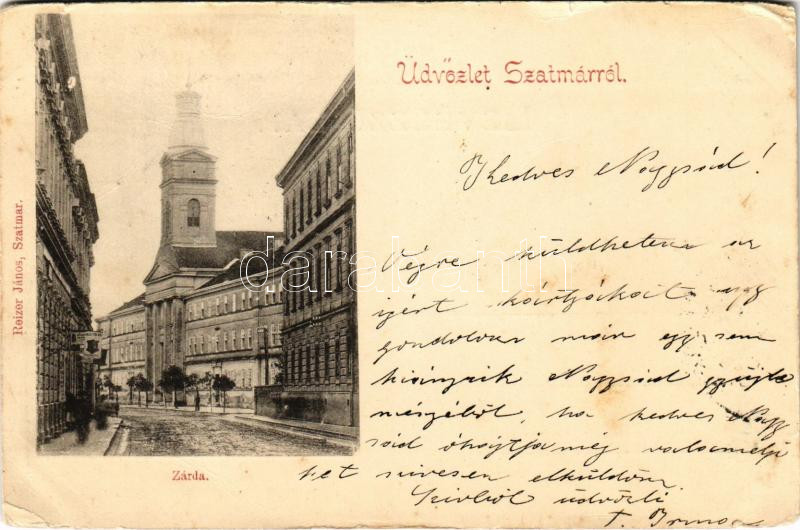 Üdvözlet Szatmárról.
Reizer János, Szatmar.
Zárda.
Kedves Nagysád!
Végre küldhetem az
igért kártyákat úgy
gondolom már egy sem
hiányzik Nagysád gyüjte
ményéből, ha kedves Nagy
sád óhajtja még valamelyi
ket szivesen elküldöm
Szivből üdvözli
Irma
darabanth